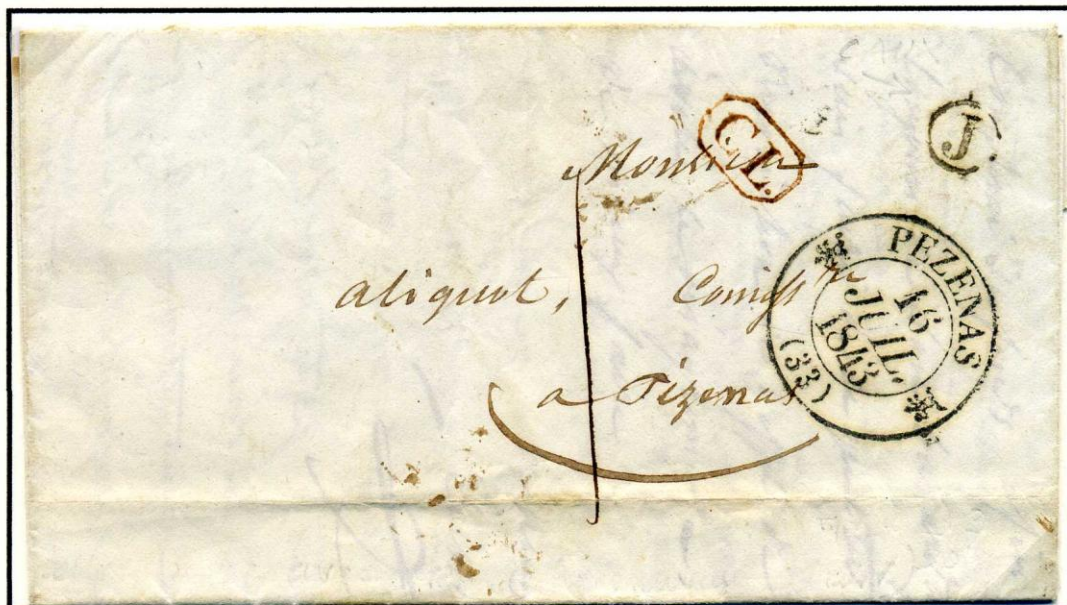 CL.
J
Monsieur
aliquot, Comiss^re
a Pézenas
1
PEZENAS
16
JUIL.
1843
(33)